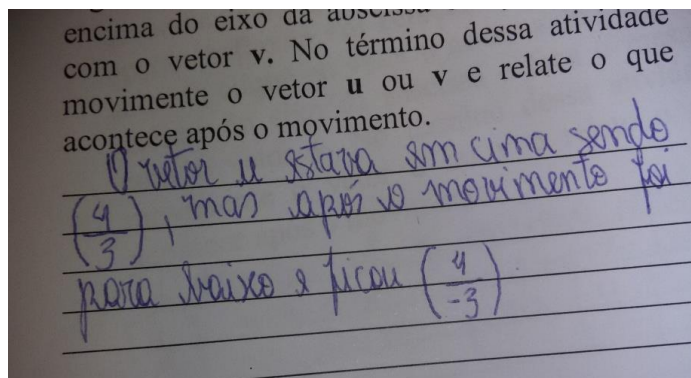 encima do eixo da abscissa
com o vetor v. No término dessa atividade
movimente o vetor u ou v e relate o que
acontece após o movimento.
O vetor u estava em cima sendo
(4/3), mas após o movimento foi
para baixo e ficou (4/-3)